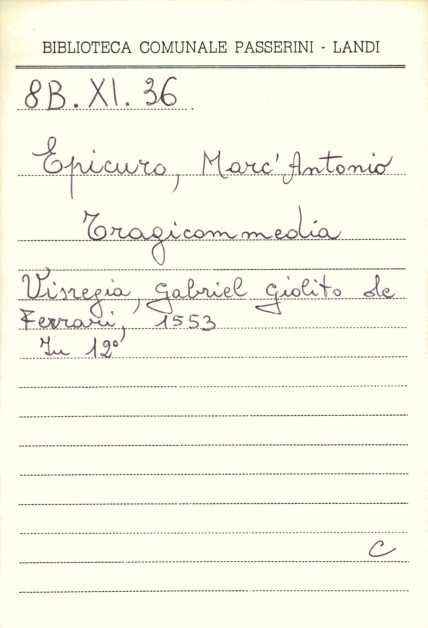 BIBLIOTECA COMUNALE PASSERINI - LANDI
8B. XI. 36
Epicuro, Marc'Antonio
Tragicommedia
Vinegia, Gabriel Giolito de
Ferrari, 1553
In 12°
C